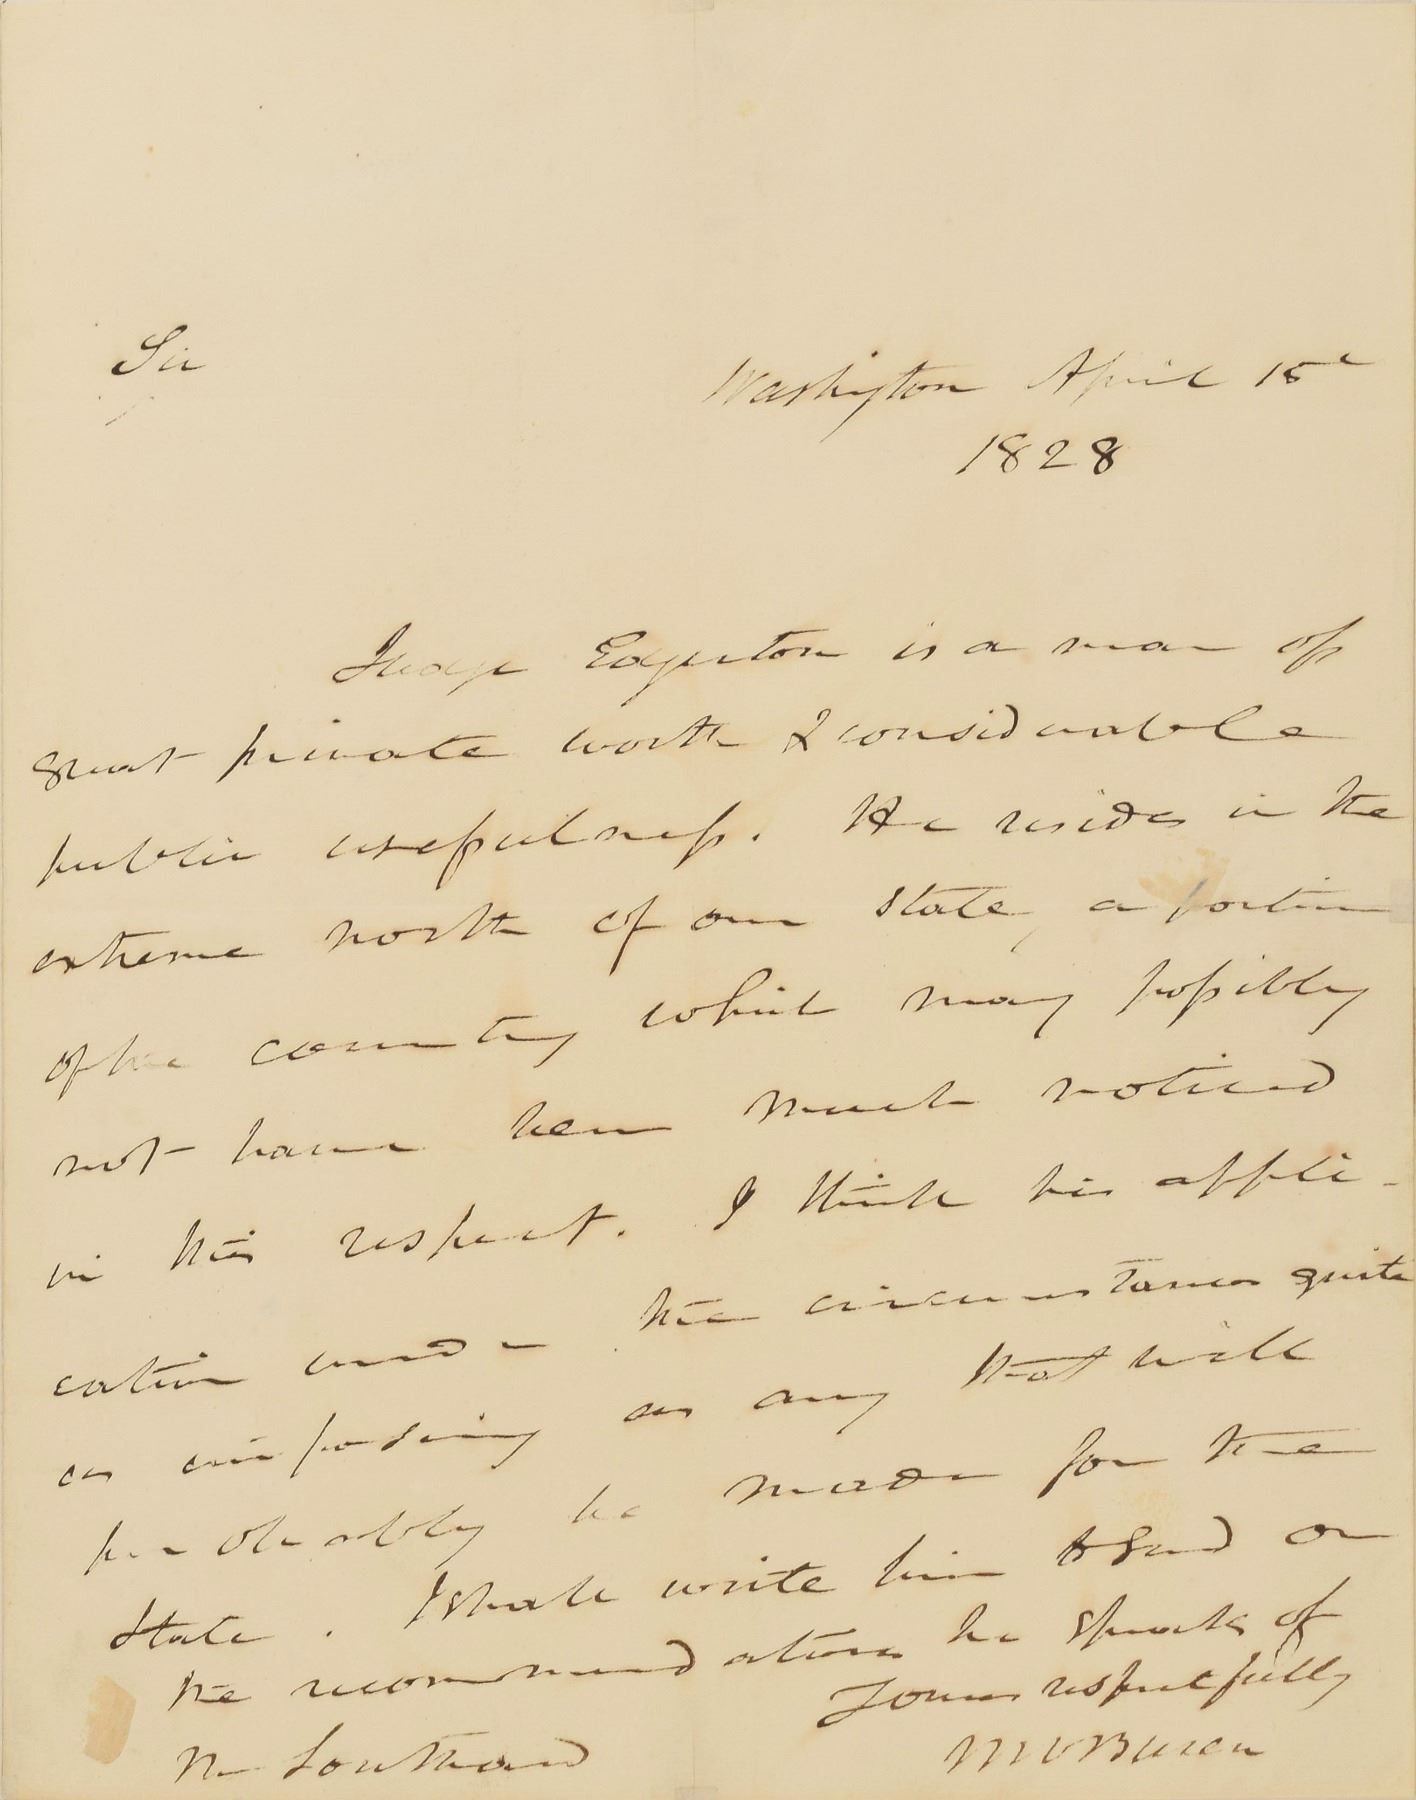 Sir
Washington April 15
1828
Judge Edgerton is a man of
great private worth & considerable
public usefulness. He resides in the
extreme north of our State, a portion
of the country which may possibly
not have been much noticed
in this respect. I think his appli-
cation under the circumstances quite
as imposing as any that will
probably be made for the
State. I shall write him to send on
the recommendations he speaks of
Yours respectfully
M V Buren
Mr Southard